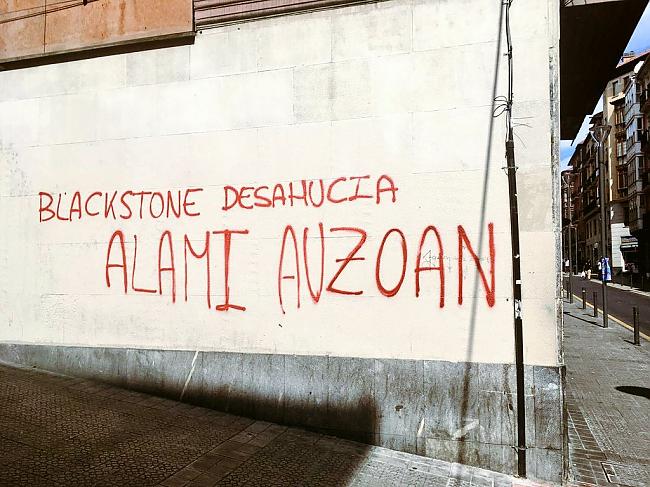 BLACKSTONE DESAHUCIA
ALAMI AUZOAN